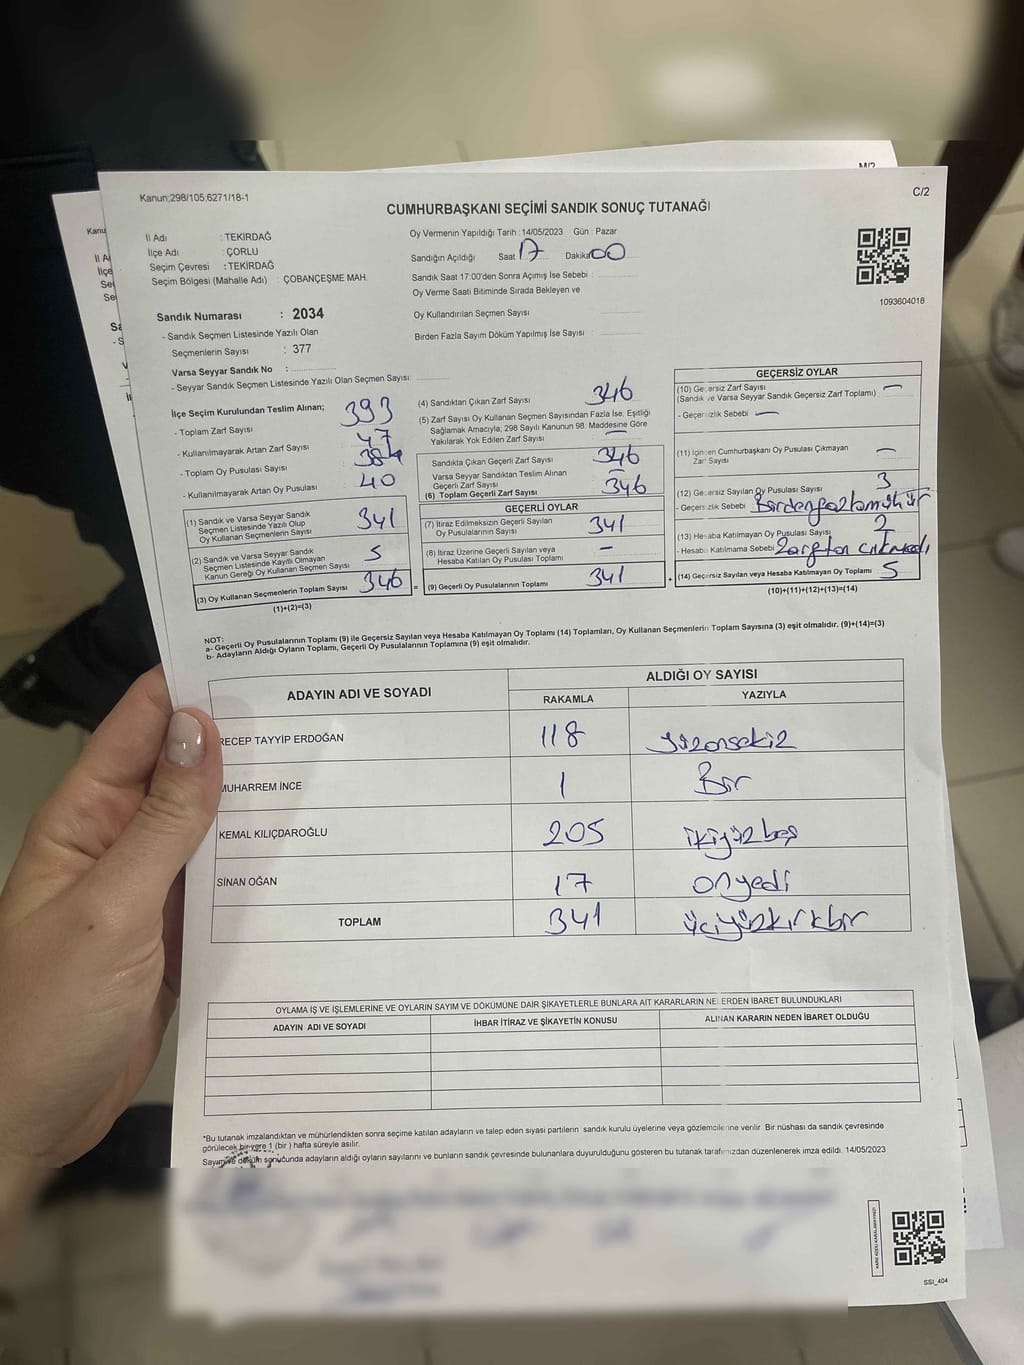 M/2
Kanun;298/105,6271/18-1
C/2
CUMHURBAŞKANI SEÇİMİ SANDIK SONUÇ TUTANAĞI
İl Adı : TEKİRDAĞ
İlçe Adı : ÇORLU
Seçim Çevresi : TEKİRDAĞ
Seçim Bölgesi (Mahalle Adı) : ÇOBANÇEŞME MAH.
Oy Vermenin Yapıldığı Tarih : 14/05/2023 Gün : Pazar
Sandığın Açıldığı Saat 17 Dakika 00
Sandık Saat 17:00'den Sonra Açımış İse Sebebi :
Oy Verme Saati Bitiminde Sırada Bekleyen ve
Oy Kullandırılan Seçmen Sayısı
Birden Fazla Sayım Döküm Yapılmış İse Sayısı :
1093604018
Sandık Numarası : 2034
- Sandık Seçmen Listesinde Yazılı Olan
Seçmenlerin Sayısı : 377
Varsa Seyyar Sandık No :
- Seyyar Sandık Seçmen Listesinde Yazılı Olan Seçmen Sayısı:
İlçe Seçim Kurulundan Teslim Alınan;
- Toplam Zarf Sayısı 393
- Kullanılmayarak Artan Zarf Sayısı 47
- Toplam Oy Pusulası Sayısı
- Kullanılmayarak Artan Oy Pusulası 40
(1) Sandık ve Varsa Seyyar Sandık
Seçmen Listesinde Yazılı Olup
Oy Kullanan Seçmenlerin Sayısı 341
(2) Sandık ve Varsa Seyyar Sandık
Seçmen Listesinde Kayıtlı Olmayan
Kanun Gereği Oy Kullanan Seçmen Sayısı 5
(3) Oy Kullanan Seçmenlerin Toplam Sayısı 346
(1)+(2)=(3)
(4) Sandıktan Çıkan Zarf Sayısı 346
(5) Zarf Sayısı Oy Kullanan Seçmen Sayısından Fazla İse, Eşitliği
Sağlamak Amacıyla; 298 Sayılı Kanunun 98. Maddesine Göre
Yakılarak Yok Edilen Zarf Sayısı —
Sandıkta Çıkan Geçerli Zarf Sayısı 346
Varsa Seyyar Sandıktan Teslim Alınan
Geçerli Zarf Sayısı —
(6) Toplam Geçerli Zarf Sayısı 346
GEÇERLİ OYLAR
(7) İtiraz Edilmeksizin Geçerli Sayılan
Oy Pusulalarının Sayısı 341
(8) İtiraz Üzerine Geçerli Sayılan veya
Hesaba Katılan Oy Pusulası Toplamı —
= (9) Geçerli Oy Pusulalarının Toplamı 341 +
GEÇERSİZ OYLAR
(10) Geçersiz Zarf Sayısı —
(Sandık ve Varsa Seyyar Sandık Geçersiz Zarf Toplamı)
- Geçersizlik Sebebi —
(11) İçinden Cumhurbaşkanı Oy Pusulası Çıkmayan
Zarf Sayısı —
(12) Geçersiz Sayılan Oy Pusulası Sayısı 3
- Geçersizlik Sebebi Birden fazla mühür
(13) Hesaba Katılmayan Oy Pusulası Sayısı 2
- Hesaba Katılmama Sebebi Zarftan çıkmadı
(14) Geçersiz Sayılan veya Hesaba Katılmayan Oy Toplamı 5
(10)+(11)+(12)+(13)=(14)
NOT:
a- Geçerli Oy Pusulalarının Toplamı (9) ile Geçersiz Sayılan veya Hesaba Katılmayan Oy Toplamı (14) Toplamları, Oy Kullanan Seçmenlerin Toplam Sayısına (3) eşit olmalıdır. (9)+(14)=(3)
b- Adayların Aldığı Oyların Toplamı, Geçerli Oy Pusulalarının Toplamına (9) eşit olmalıdır.
ADAYIN ADI VE SOYADI
ALDIĞI OY SAYISI
RAKAMLA YAZIYLA
RECEP TAYYİP ERDOĞAN 118 yüzonsekiz
MUHARREM İNCE 1 Bir
KEMAL KILIÇDAROĞLU 205 ikiyüzbeş
SİNAN OĞAN 17 onyedi
TOPLAM 341 üçyüzkırkbir
OYLAMA İŞ VE İŞLEMLERİNE VE OYLARIN SAYIM VE DÖKÜMÜNE DAİR ŞİKAYETLERLE BUNLARA AİT KARARLARIN NELERDEN İBARET BULUNDUKLARI
ADAYIN ADI VE SOYADI İHBAR İTİRAZ VE ŞİKAYETİN KONUSU ALINAN KARARIN NEDEN İBARET OLDUĞU
*Bu tutanak imzalandıktan ve mühürlendikten sonra seçime katılan adayların ve talep eden siyasi partilerin sandık kurulu üyelerine veya gözlemcilerine verilir. Bir nüshası da sandık çevresinde
görülecek bir yere 1 (bir ) hafta süreyle asılır.
Sayım ve döküm sonucunda adayların aldığı oyların sayılarını ve bunların sandık çevresinde bulunanlara duyurulduğunu gösteren bu tutanak tarafımızdan düzenlenerek imza edildi. 14/05/2023
KARE KODU KARALAMAYINIZ!
SSI_404